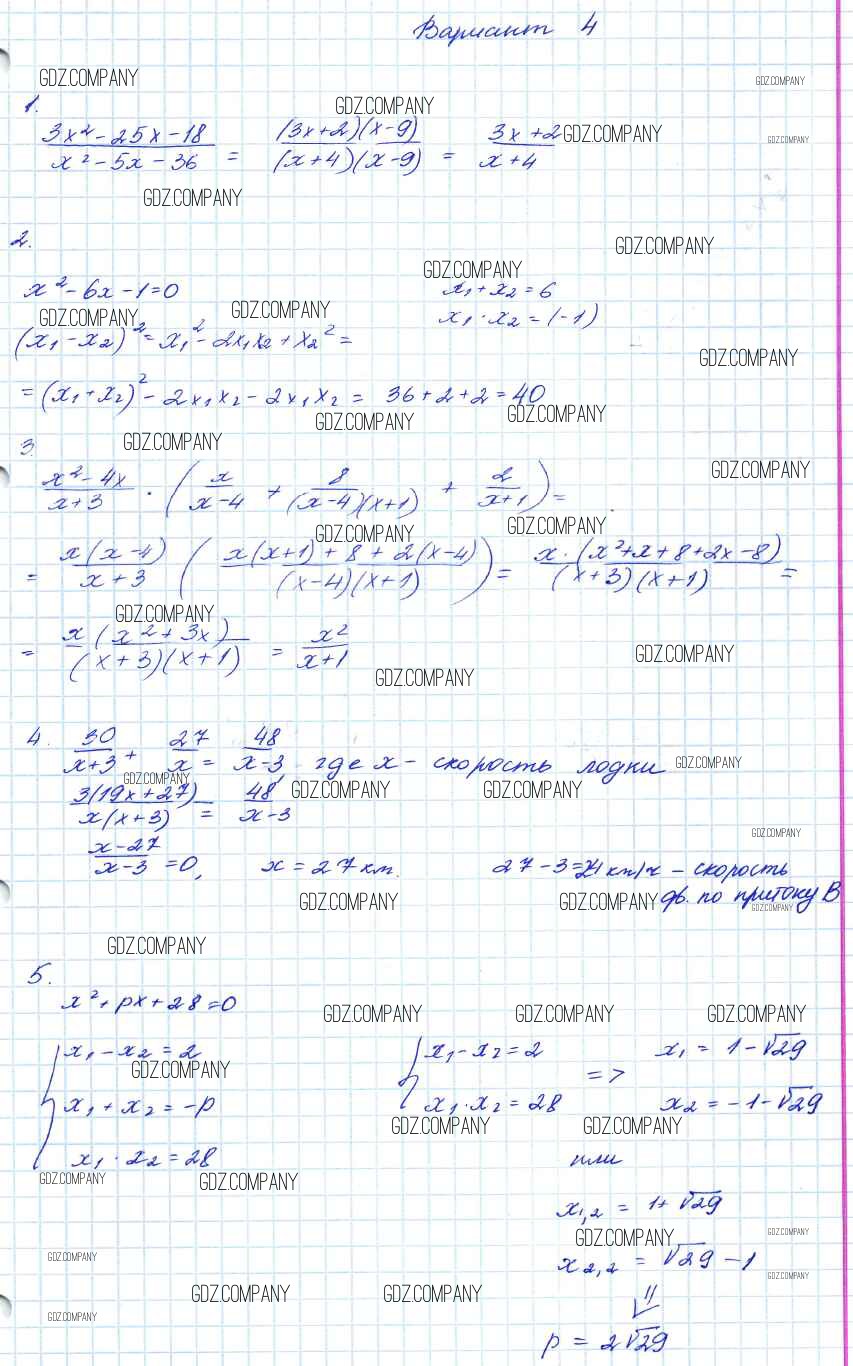 Вариант 4
GDZ.COMPANY GDZ.COMPANY
1. GDZ.COMPANY
(3x² - 25x - 18)/(x² - 5x - 36) = ((3x+2)(x-9))/((x+4)(x-9)) = (3x+2)/(x+4) GDZ.COMPANY GDZ.COMPANY
GDZ.COMPANY
2. GDZ.COMPANY
GDZ.COMPANY
x² - 6x - 1 = 0 x₁ + x₂ = 6
GDZ.COMPANY GDZ.COMPANY x₁ · x₂ = (-1)
(x₁ - x₂)² = x₁² - 2x₁x₂ + x₂² =
GDZ.COMPANY
= (x₁ + x₂)² - 2x₁x₂ - 2x₁x₂ = 36 + 2 + 2 = 40
GDZ.COMPANY GDZ.COMPANY
3. GDZ.COMPANY
(x² - 4x)/(x+3) · (x/(x-4) + 8/((x-4)(x+1)) + 2/(x+1)) = GDZ.COMPANY
GDZ.COMPANY GDZ.COMPANY
= (x(x-4))/(x+3) ((x(x+1) + 8 + 2(x-4))/((x-4)(x+1))) = (x·(x²+x+8+2x-8))/((x+3)(x+1)) =
GDZ.COMPANY
= (x(x²+3x))/((x+3)(x+1)) = x²/(x+1) GDZ.COMPANY
GDZ.COMPANY
4. 30/(x+3) + 27/x = 48/(x-3), где x - скорость лодки GDZ.COMPANY
GDZ.COMPANY GDZ.COMPANY GDZ.COMPANY
(3(19x+27))/(x(x+3)) = 48/(x-3)
GDZ.COMPANY
(x-27)/(x-3) = 0, x = 27 км. 27 - 3 = 24 км/ч - скорость
GDZ.COMPANY GDZ.COMPANY дв. по притоку В GDZ.COMPANY
GDZ.COMPANY
5.
x² + px + 28 = 0
GDZ.COMPANY GDZ.COMPANY GDZ.COMPANY
x₁ - x₂ = 2 x₁ - x₂ = 2 => x₁ = 1 - √29
GDZ.COMPANY
x₁ + x₂ = -p x₁ · x₂ = 28 x₂ = -1 - √29
GDZ.COMPANY GDZ.COMPANY
x₁ · x₂ = 28 или
GDZ.COMPANY GDZ.COMPANY
x₁,₂ = 1 + √29
GDZ.COMPANY GDZ.COMPANY
GDZ.COMPANY x₂,₂ = √29 - 1
GDZ.COMPANY
GDZ.COMPANY GDZ.COMPANY
GDZ.COMPANY
p = 2√29